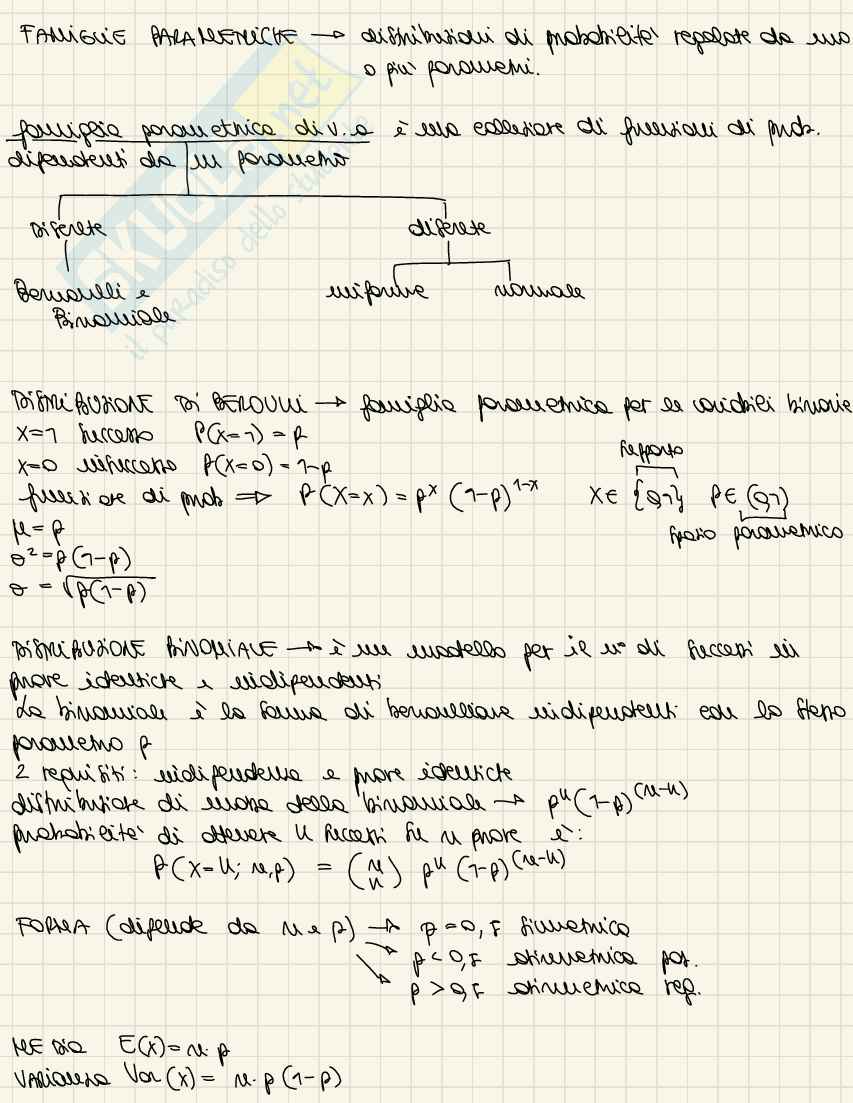 FAMIGLIE PARAMETRICHE → distribuzioni di probabilità regolate da uno
o più parametri.
famiglia parametrica di v.a è una collezione di funzioni di prob.
dipendenti da un parametro
Discrete
discrete
Bernoulli e
Binomiale
uniforme
normale
DISTRIBUZIONE DI BEROULLI → famiglia parametrica per le variabili binarie
X=1 successo P(X=1) = p
X=0 insuccesso P(X=0) = 1-p
supporto
funzione di prob ⇒ P(X=x) = p^x (1-p)^{1-x} X∈ {0,1} p∈ (0,1)
spazio parametrico
μ = p
σ² = p(1-p)
σ = √p(1-p)
DISTRIBUZIONE BINOMIALE → è un modello per il n° di successi in
prove identiche e indipendenti
La binomiale è la somma di bernoulliane indipendenti con lo stesso
parametro p
2 requisiti: indipendenza e prove identiche
distribuzione di massa della binomiale → p^k (1-p)^{(n-k)}
probabilità di ottenere k successi su n prove è:
P(X=k; n,p) = (n k) p^k (1-p)^{(n-k)}
FORMA (dipende da n e p) → p=0,5 simmetrica
p<0,5 asimmetrica pos.
p>0,5 asimmetrica neg.
MEDIA E(X) = n·p
VARIANZA Var(X) = n·p(1-p)
SKUOLA.net
il paradiso dello studente